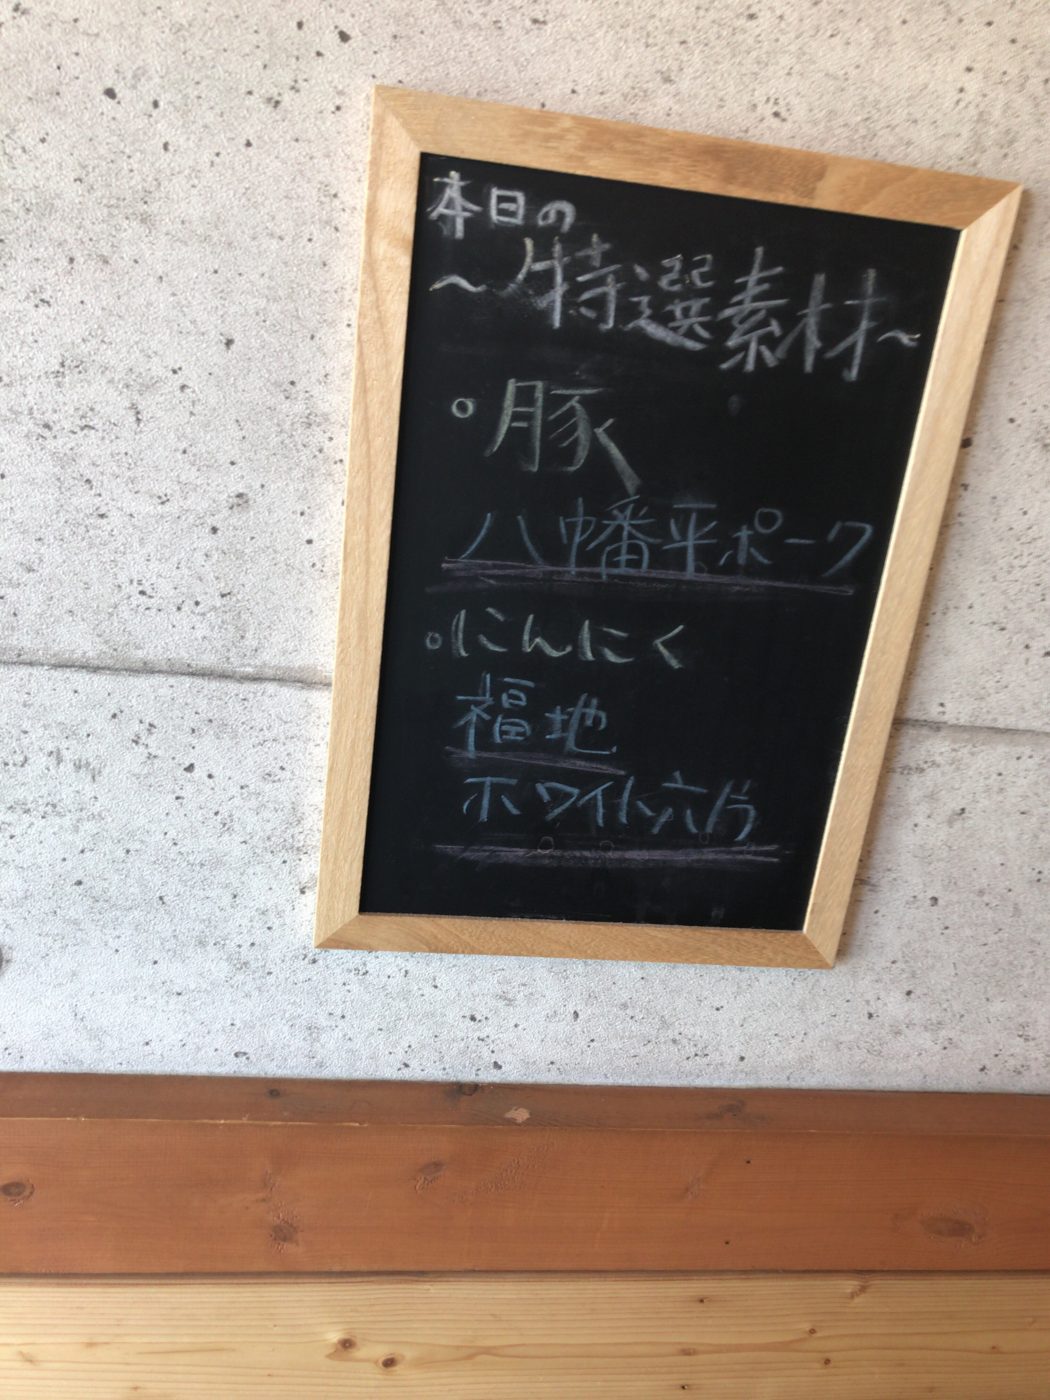 本日の
～特選素材～
○豚
八幡平ポーク
○にんにく
福地
ホワイト六片